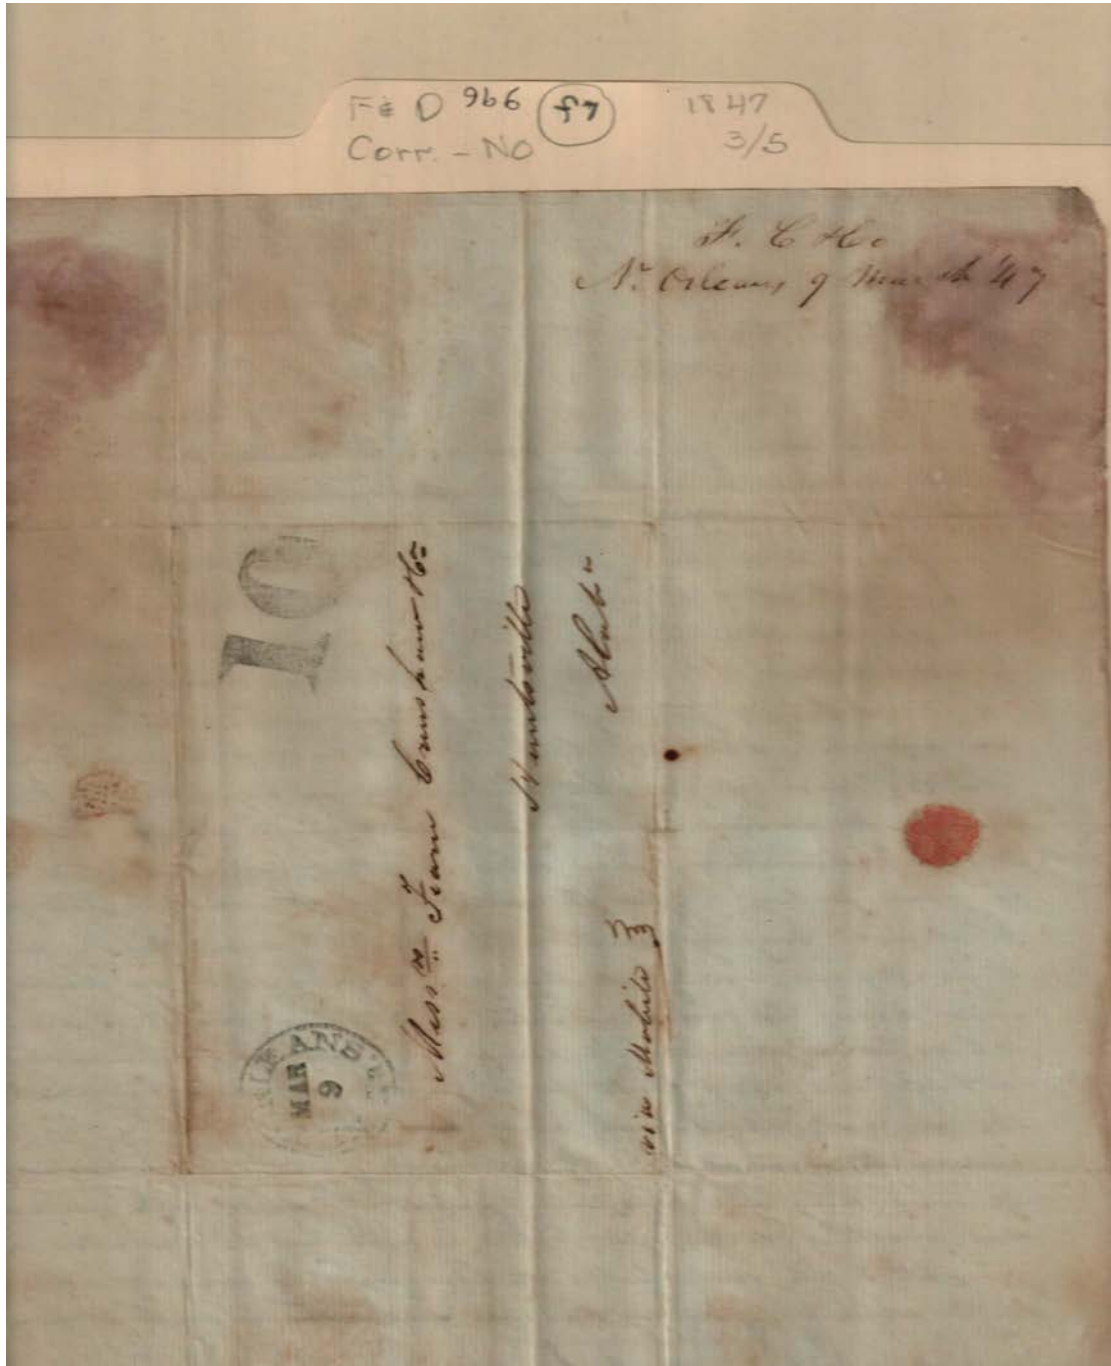 F & D 966 f7 1847
Corr. - NO 3/5
F. C & Co
N. Orleans, 9 March '47
10
Mess rs Fearn Crenshaw & Co
Huntsville
Alaba
via Mobile
ORLEANS
MAR
9